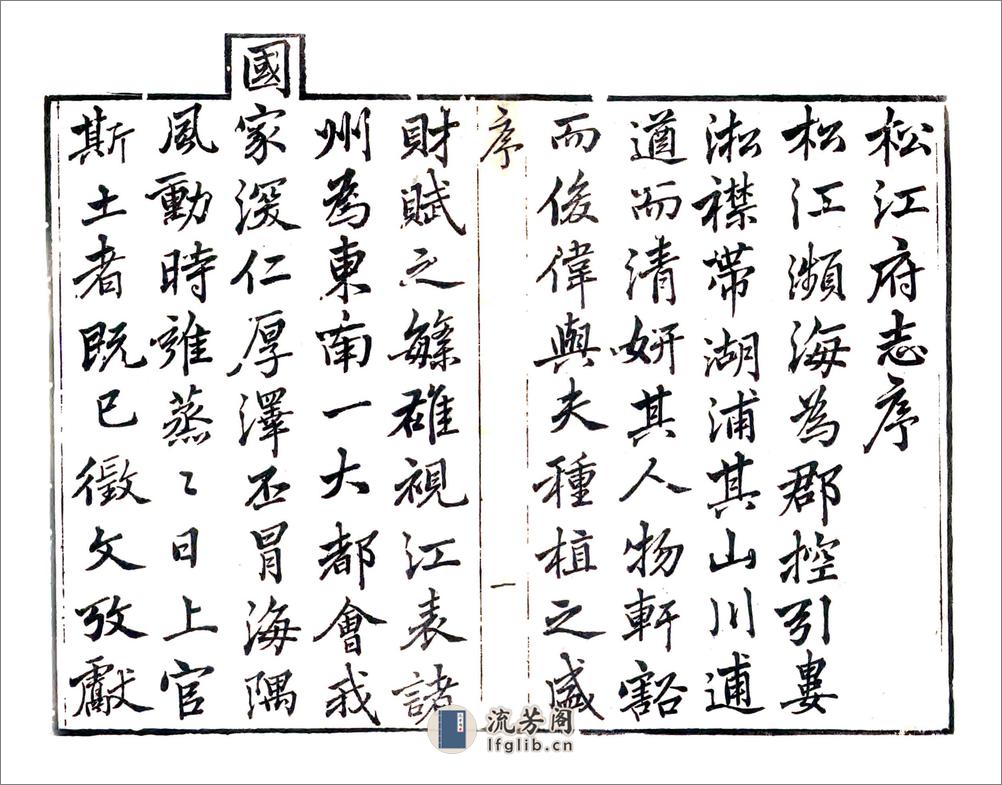 松江府志序
松江瀕海為郡控引婁
淞襟帶湖浦其山川逋
遒而清妍其人物軒豁
而俊偉與夫種植之盛
序
一
財賦之緐雄視江表諸
州為東南一大都會我
國家深仁厚澤丕冒海隅
風動時雍蒸〻日上官
斯土者既已徵文攷獻
流芳阁
lfglib.cn